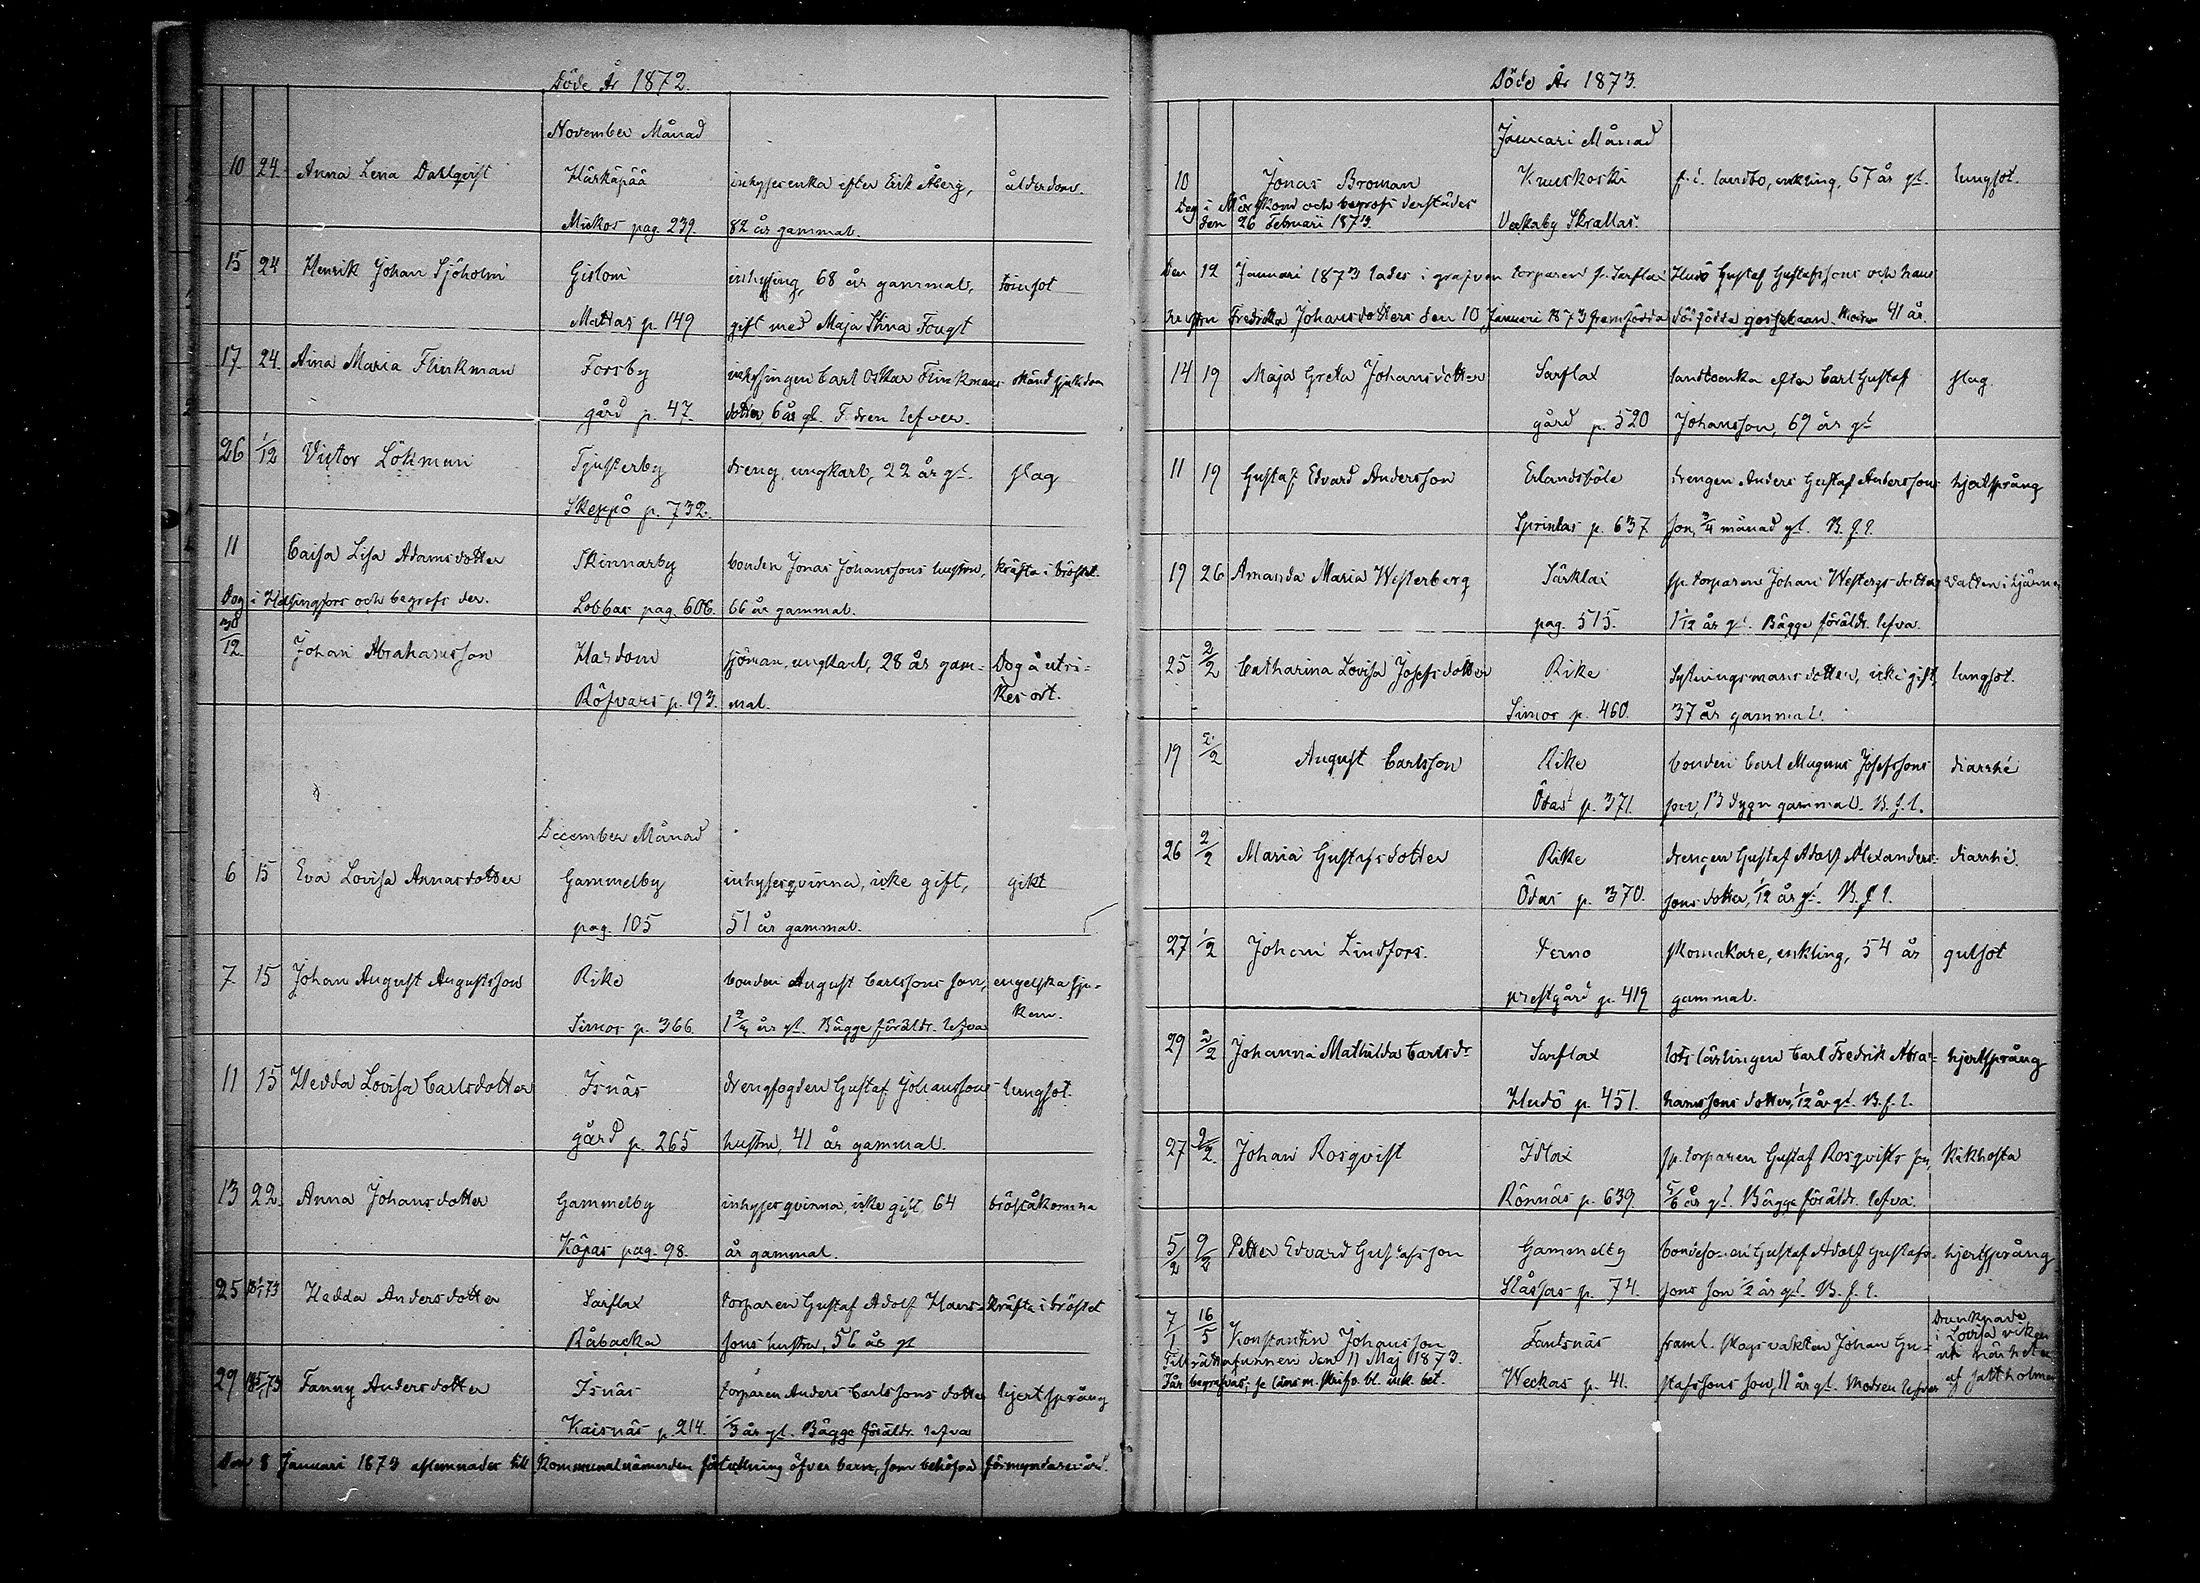 Döde År 1872.
November Månad
10 24. Anna Lena Dahlqvist Härkäpää inhysesenka efter Erik Åberg, ålderdom.
Mickos pag. 239. 82 år gammal.
15 24 Henrik Johan Sjöholm Gislom inhysing, 68 år gammal, vinsot
Mattas p. 149 gift med Maja Stina Fougt
17 24. Aina Maria Flinkman Forsby inhysingen Carl Oskar Flinkmans okänd sjukdom
gård p. 47. dotter, 6 år gl. F. dren lefver.
26 1/12 Victor Lökman Tjusterby dreng, ungkarl, 22 år gl. slag
Skeppö p. 732.
11 Caisa Lisa Adamsdotter Skinnarby bonden Jonas Johanssons hustru, kräfta i bröstet.
Dog i Helsingfors och begrofs der. Lobbas pag. 606. 66 år gammal.
30/12. Johan Abrahamsson Hardom sjöman, ungkarl, 28 år gam- Dog å utri-
Röfvars p. 193. mal. kes ort.
December Månad
6 15 Eva Lovisa Annasdotter Gammelby inhysesqvinna, icke gift, gikt
pag. 105 51 år gammal.
7 15 Johan August Augustsson Rike bonden August Carlssons son, engelska sju-
Simos p. 366. 1 3/4 år gl. Bägge föräldr. lefva kan.
11 15 Hedda Lovisa Carlsdotter Isnäs drengfogden Gustaf Johanssons lungsot.
gård p. 265 hustru, 41 år gammal.
13 22. Anna Johansdotter Gammelby inhysesqvinna, icke gift, 64 bröståkomma
Köpas pag. 98. år gammal.
25 Hedda Andersdotter Sarflax torparen Gustaf Adolf Hans- kräfta i bröstet
Råbacka sons hustru, 56 år gl
29 Fanny Andersdotter Isnäs torparen Anders Carlssons dotter hjertsprång
Kaisnäs p. 214. 1/3 år gl. Bägge föräldr. lefva
Den 8 Januari 1873 aflemnades till Kommunalnämnden förteckning öfver barn, som behöfva förmyndarevård.
Döde År 1873.
Januari Månad
10 Jonas Broman Kuuskoski f. d. landbo, enkling, 67 år gl. lungsot.
Dog i Mörskom och begrofs derstädes
den 26 Februari 1873. Veckaby Skrallas.
Den 12 Januari 1873 lades i grafven torparen fr. Sarflax Hudö Gustaf Gustafssons och hans
hustru Fredrika Johansdotters den 10 Januari 1873 framfödda dödfödda gossebarn. Modren 41 år.
14 19 Maja Greta Johansdotter Sarflax landboenka efter Carl Gustaf slag
gård p. 520 Johansson, 69 år gl
11 19 Gustaf Edvard Andersson Erlandsböle drengen Anders Gustaf Anderssons hjertsprång
Sprintas p. 637 son, 3/4 månad gl. B. f. l.
19 26 Amanda Maria Westerberg Särklax sp. torparen Johan Westerbergs dotter vatten i hjärnan
pag. 515. 1 1/12 år gl. Bägge föräldr. lefva.
25 2/2 Catharina Lovisa Josefsdotter Rike Sytningsmans dotter, icke gift, lungsot.
Simos p. 460. 37 år gammal.
19 2/2 August Carlsson Rike bonden Carl Magnus Josefssons diarrhé
Ödas p. 371. son, 13 dygn gammal. B. f. l.
26 2/2 Maria Gustafsdotter Rike drengen Gustaf Adolf Alexanders- diarrhé.
Ödas p. 370. sons dotter, 1/12 år gl. B. f. l.
27 1/2 Johan Lindfors. Perno skomakare, enkling, 54 år gulsot
prestgård p. 419 gammal.
29 2/2 Johanna Mathilda Carlsdr Sarflax lotslärlingen Carl Fredrik Abra- hjertsprång
Hudö p. 451. hamssons dotter, 1/12 år gl. B. f. l.
27 2/2. Johan Rosqvist Idlax sp. torparen Gustaf Rosqvists son, kikhosta
Rönnäs p. 639. 5/6 år gl. Bägge föräldr. lefva.
5/2 9/2 Petter Edvard Gustafsson Gammelby bondesonen Gustaf Adolf Gustafs- hjertsprång
Slåssas p. 74. sons son 1/2 år gl. B. f. l.
7/1 16/5 Konstantin Johansson Fantsnäs framl. skogsvakten Johan Gu- Drunknade
i Lovisa viken
Tillrättafunnen den 11 Maj 1873. uti närheten
Får begrafvas; se läns m. skrifv. bl. ink. bet. Weckas p. 41. stafssons son, 11 år gl. Modren lefver af